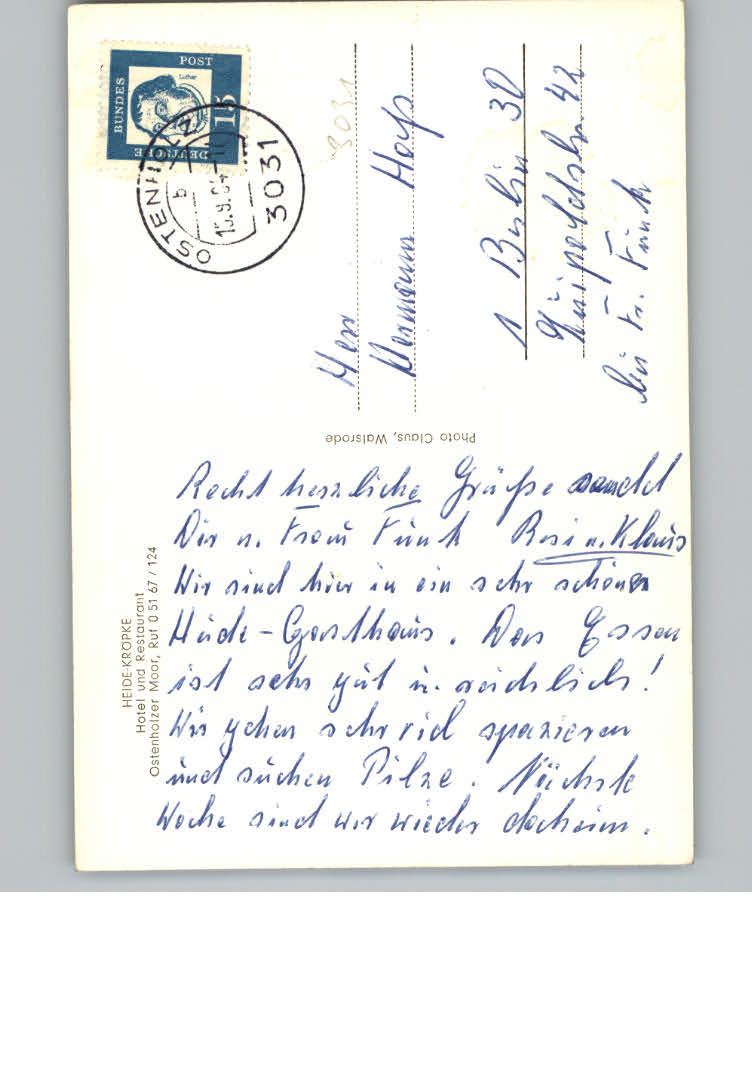 Recht herzliche Grüße sendet
Dir u. Frau Funk Rosi u. Klaus
Wir sind hier in ein sehr schönen
Heide-Gasthaus. Das Essen
ist sehr gut u. reichlich!
Wir gehen sehr viel spazieren
und suchen Pilze. Nächste
Woche sind wir wieder daheim.
HEIDE-KRÖPKE
Hotel und Restaurant
Ostenholzer Moor, Ruf 0 51 67 / 124
Photo Claus, Walsrode
3031
Herr
Hermann
1 Berlin 30
42
bei Fr. Funk
DEUTSCHE
BUNDES
POST
Luther
15
OSTENHOLZ
b
3031